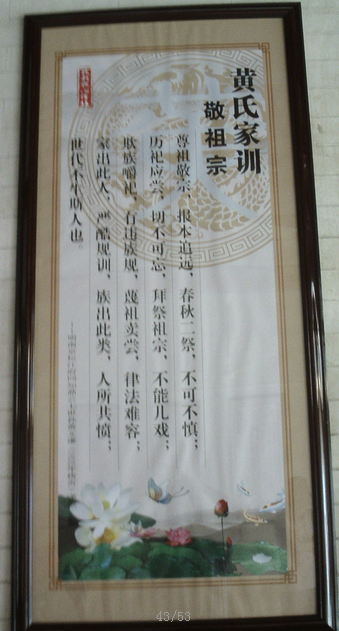 黄氏家训
敬祖宗
尊祖敬宗，报本追远，春秋二祭，不可不慎；
历祀应尝，切不可忘，拜祭祖宗，不能儿戏；
欺族嚼祀，有违族规，蔑祖卖尝，律法难容；
家出此人，严酷规训，族出此类，人所共愤；
世代不生昉人也。
43/53